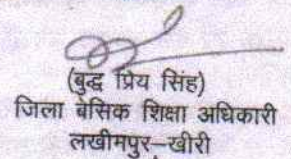 (बुद्ध प्रिय सिंह)
जिला बेसिक शिक्षा अधिकारी
लखीमपुर–खीरी